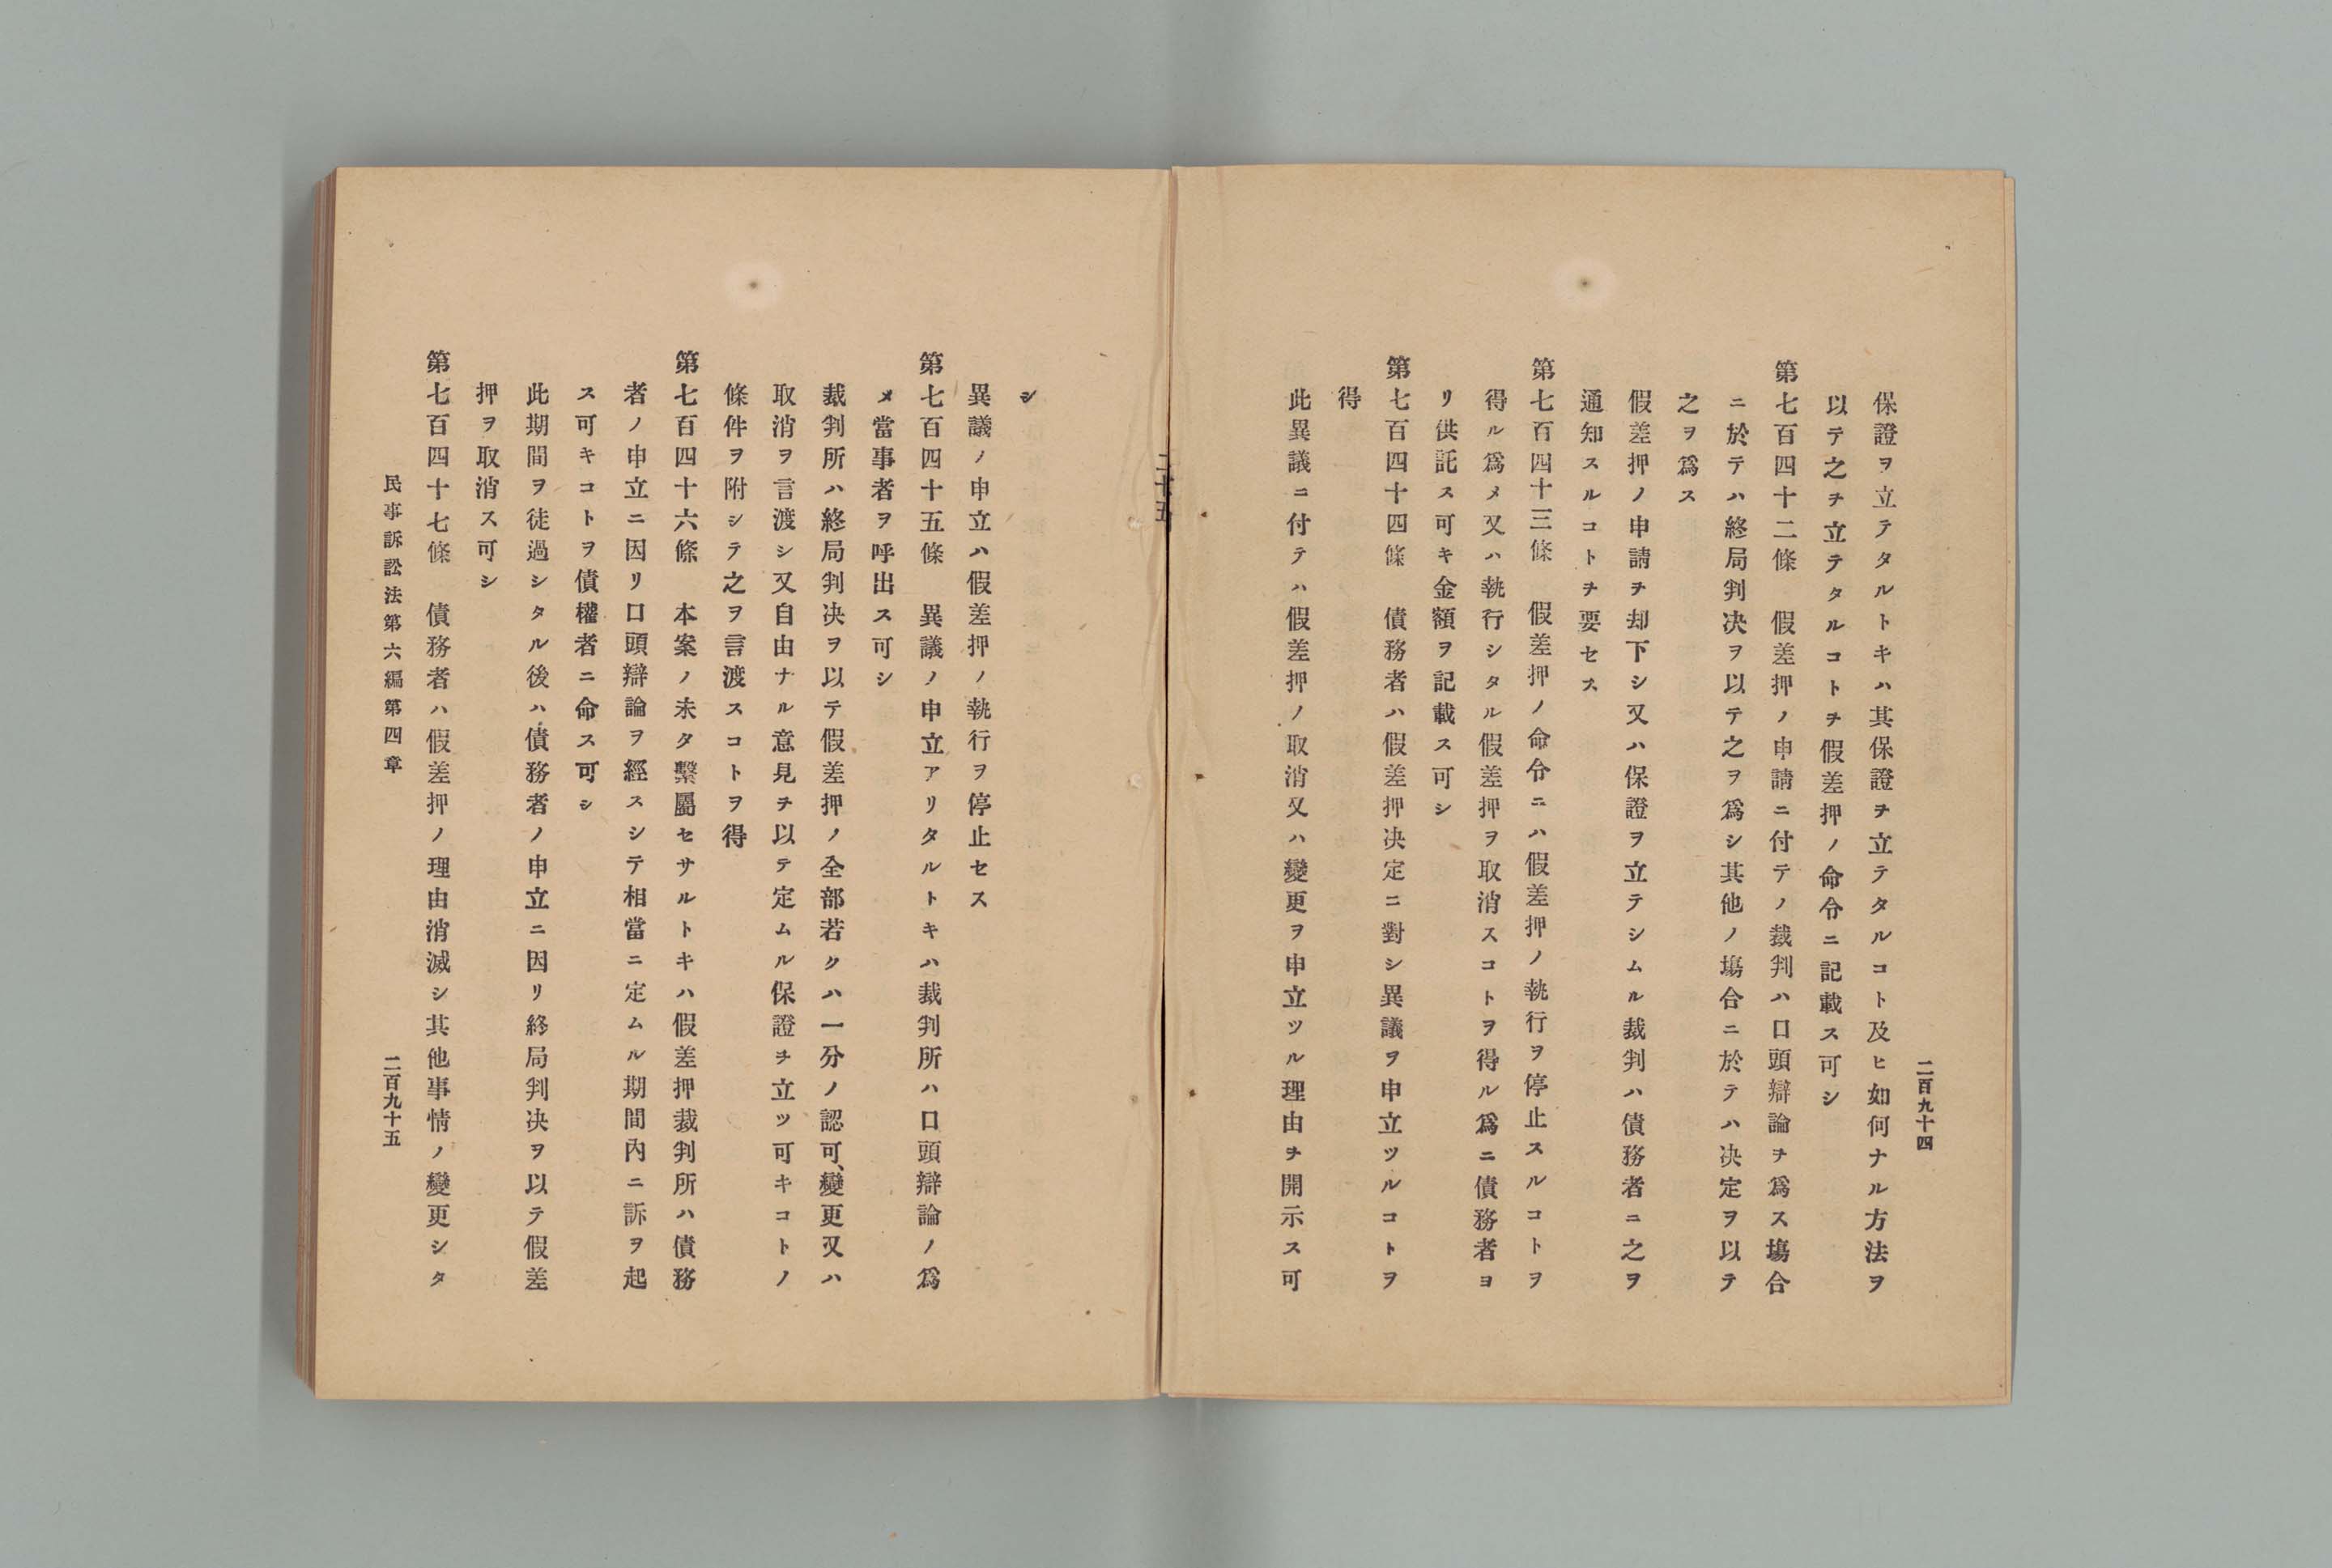 二百九十四
保證ヲ立テタルトキハ其保證ヲ立テタルコト及ヒ如何ナル方法ヲ
以テ之ヲ立テタルコトヲ假差押ノ命令ニ記載ス可シ
第七百四十二條　假差押ノ申請ニ付テノ裁判ハ口頭辯論ヲ爲ス塲合
ニ於テハ終局判决ヲ以テ之ヲ爲シ其他ノ塲合ニ於テハ决定ヲ以テ
之ヲ爲ス
假差押ノ申請ヲ却下シ又ハ保證ヲ立テシムル裁判ハ債務者ニ之ヲ
通知スルコトヲ要セス
第七百四十三條　假差押ノ命令ニハ假差押ノ執行ヲ停止スルコトヲ
得ル爲メ又ハ執行シタル假差押ヲ取消スコトヲ得ル爲ニ債務者ヨ
リ供託ス可キ金額ヲ記載ス可シ
第七百四十四條　債務者ハ假差押决定ニ對シ異議ヲ申立ツルコトヲ
得
此異議ニ付テハ假差押ノ取消又ハ變更ヲ申立ツル理由ヲ開示ス可
二十五
シ
異議ノ申立ハ假差押ノ執行ヲ停止セス
第七百四十五條　異議ノ申立アリタルトキハ裁判所ハ口頭辯論ノ爲
メ當事者ヲ呼出ス可シ
裁判所ハ終局判决ヲ以テ假差押ノ全部若クハ一分ノ認可、變更又ハ
取消ヲ言渡シ又自由ナル意見ヲ以テ定ムル保證ヲ立ツ可キコトノ
條件ヲ附シテ之ヲ言渡スコトヲ得
第七百四十六條　本案ノ未タ繫屬セサルトキハ假差押裁判所ハ債務
者ノ申立ニ因リ口頭辯論ヲ經スシテ相當ニ定ムル期間內ニ訴ヲ起
ス可キコトヲ債權者ニ命ス可シ
此期間ヲ徒過シタル後ハ債務者ノ申立ニ因リ終局判决ヲ以テ假差
押ヲ取消ス可シ
第七百四十七條　債務者ハ假差押ノ理由消滅シ其他事情ノ變更シタ
民事訴訟法第六編第四章
二百九十五